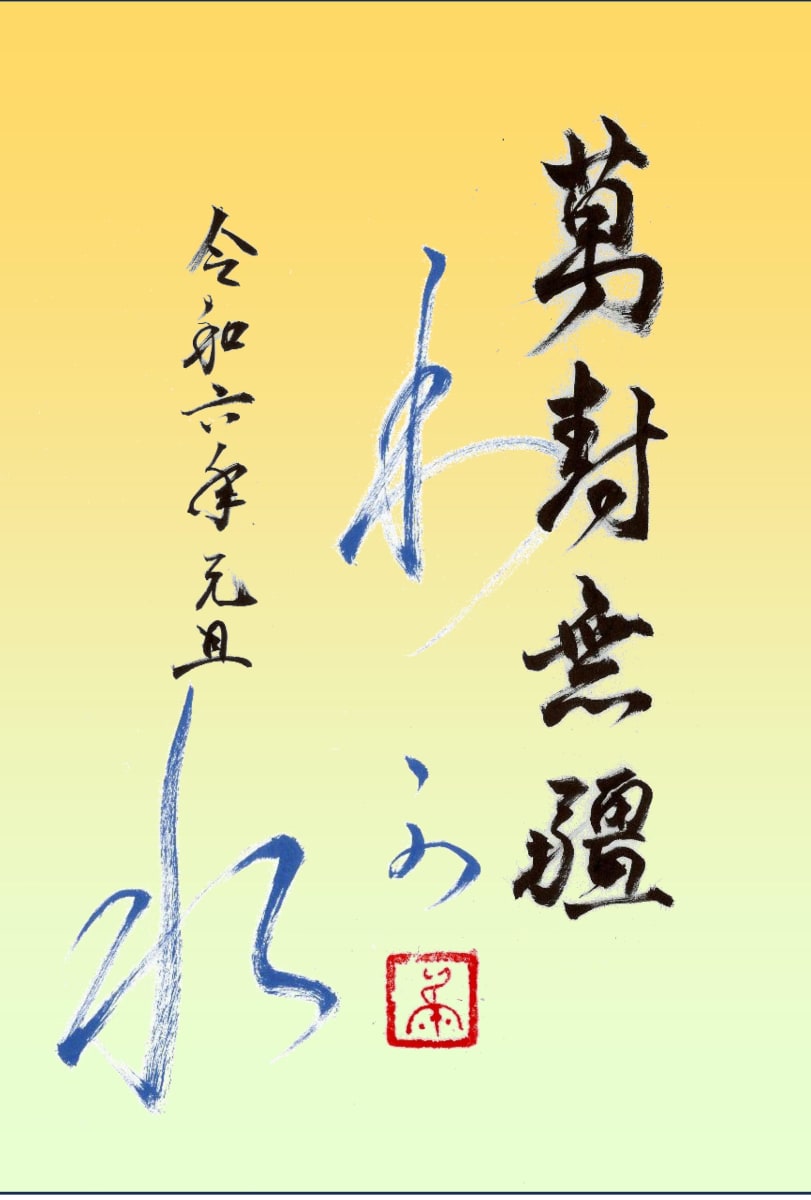 萬壽無疆
令和六年元旦
水